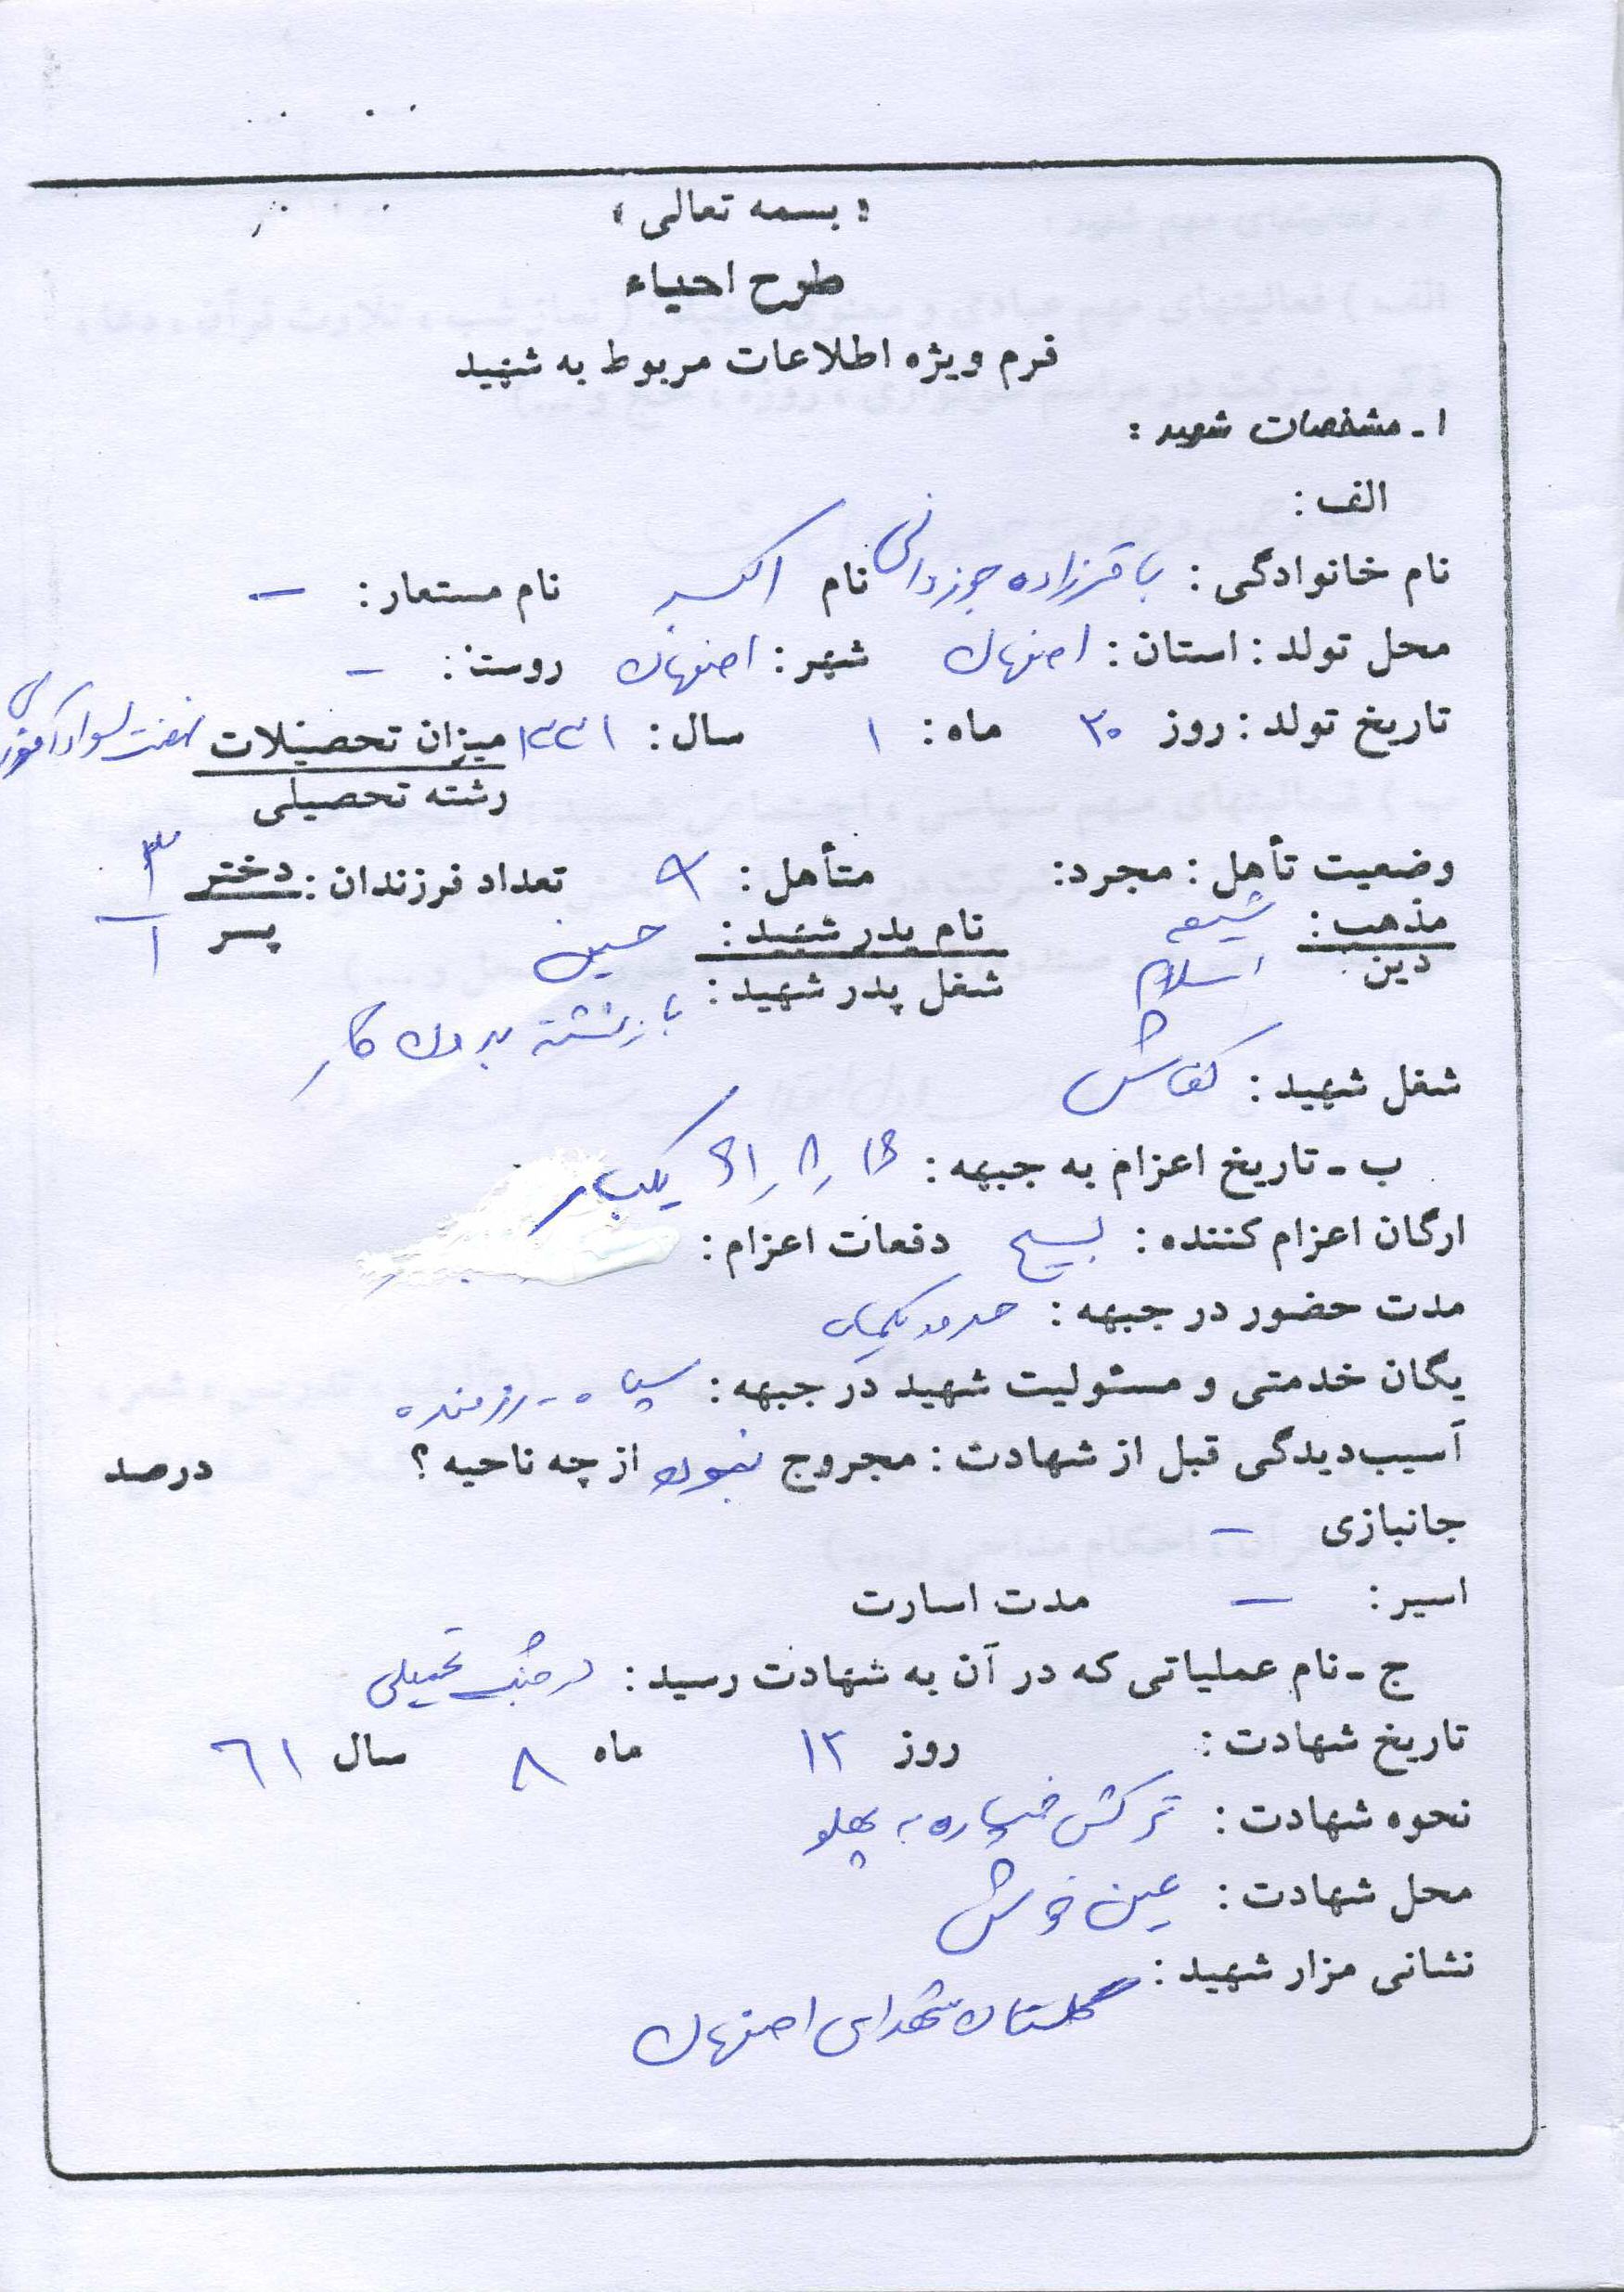 « بسمه تعالی »
طرح احیاء
فرم ویژه اطلاعات مربوط به شهید
۱ـ مشخصات شهید :
الف :
نام خانوادگی : باقرزاده جوزدانی نام اکبر نام مستعار : –
محل تولد : استان : اصفهان شهر : اصفهان روستا : –
تاریخ تولد : روز ۳۰ ماه : ۱ سال : ۱۳۳۱ میزان تحصیلات نهضت سوادآموزی
رشته تحصیلی
وضعیت تأهل : مجرد: متأهل : تعداد فرزندان : دختر ۳
پسر ۱
مذهب : شیعه نام پدر شهید : حسین
دین اسلام شغل پدر شهید : بازنشسته بدون کار
شغل شهید : کفاش
ب ـ تاریخ اعزام به جبهه : یکبار
ارگان اعزام کننده : بسیج دفعات اعزام :
مدت حضور در جبهه : حدود یکماه
یگان خدمتی و مسئولیت شهید در جبهه : سپاه - رزمنده
آسیب‌دیدگی قبل از شهادت : مجروح نبوده از چه ناحیه ؟ درصد
جانبازی –
اسیر : – مدت اسارت
ج ـ نام عملیاتی که در آن به شهادت رسید : در جنگ تحمیلی
تاریخ شهادت : روز ۱۲ ماه ۸ سال ۶۱
نحوه شهادت : ترکش خمپاره به پهلو
محل شهادت : عین خوش
نشانی مزار شهید :
گلستان شهدای اصفهان